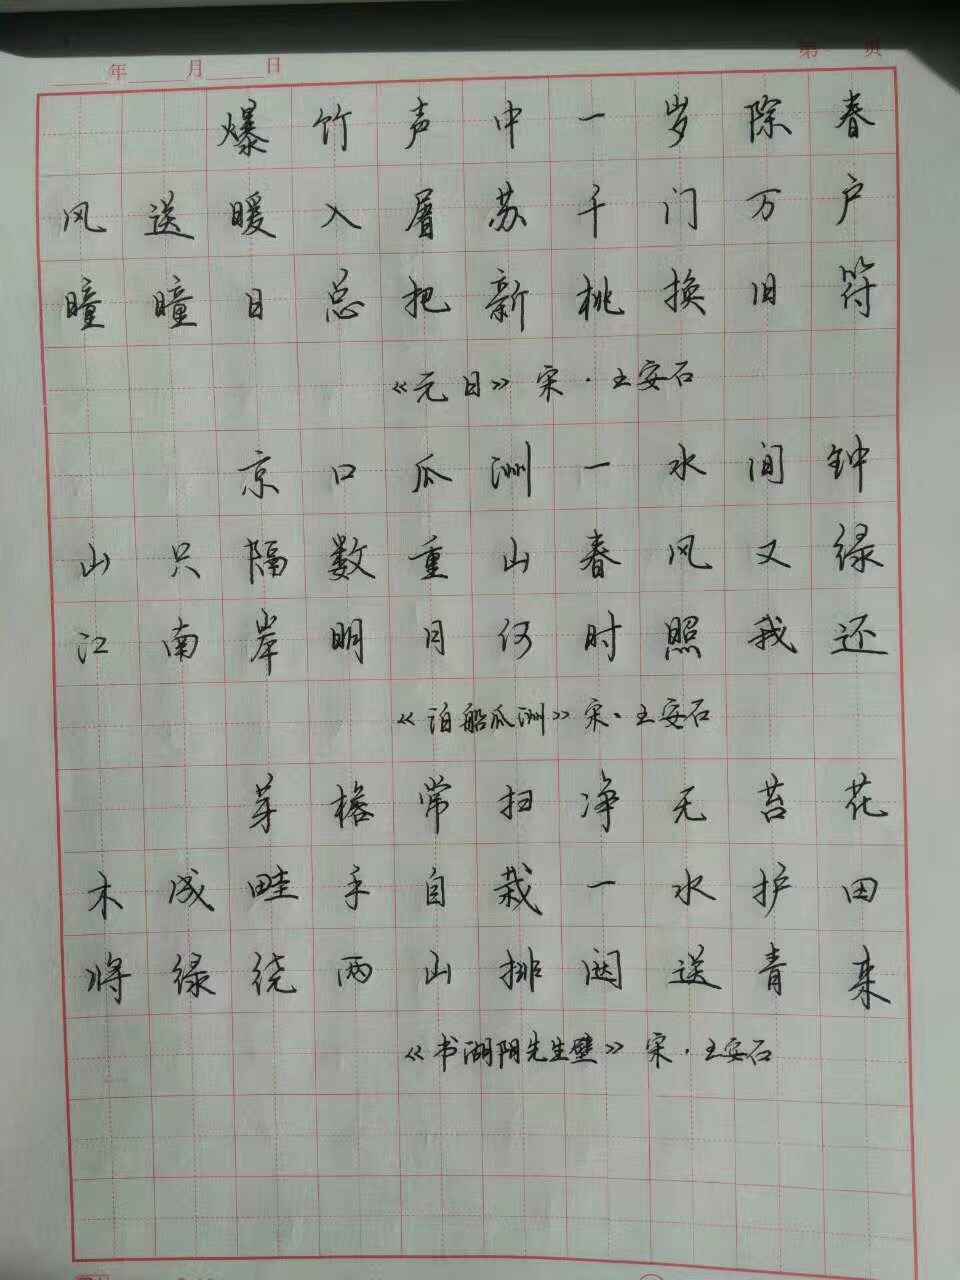 年 月 日 第 页
爆竹声中一岁除春
风送暖入屠苏千门万户
曈曈日总把新桃换旧符
《元日》宋·王安石
京口瓜洲一水间钟
山只隔数重山春风又绿
江南岸明月何时照我还
《泊船瓜洲》宋·王安石
茅檐常扫净无苔花
木成畦手自栽一水护田
将绿绕两山排闼送青来
《书湖阴先生壁》宋·王安石